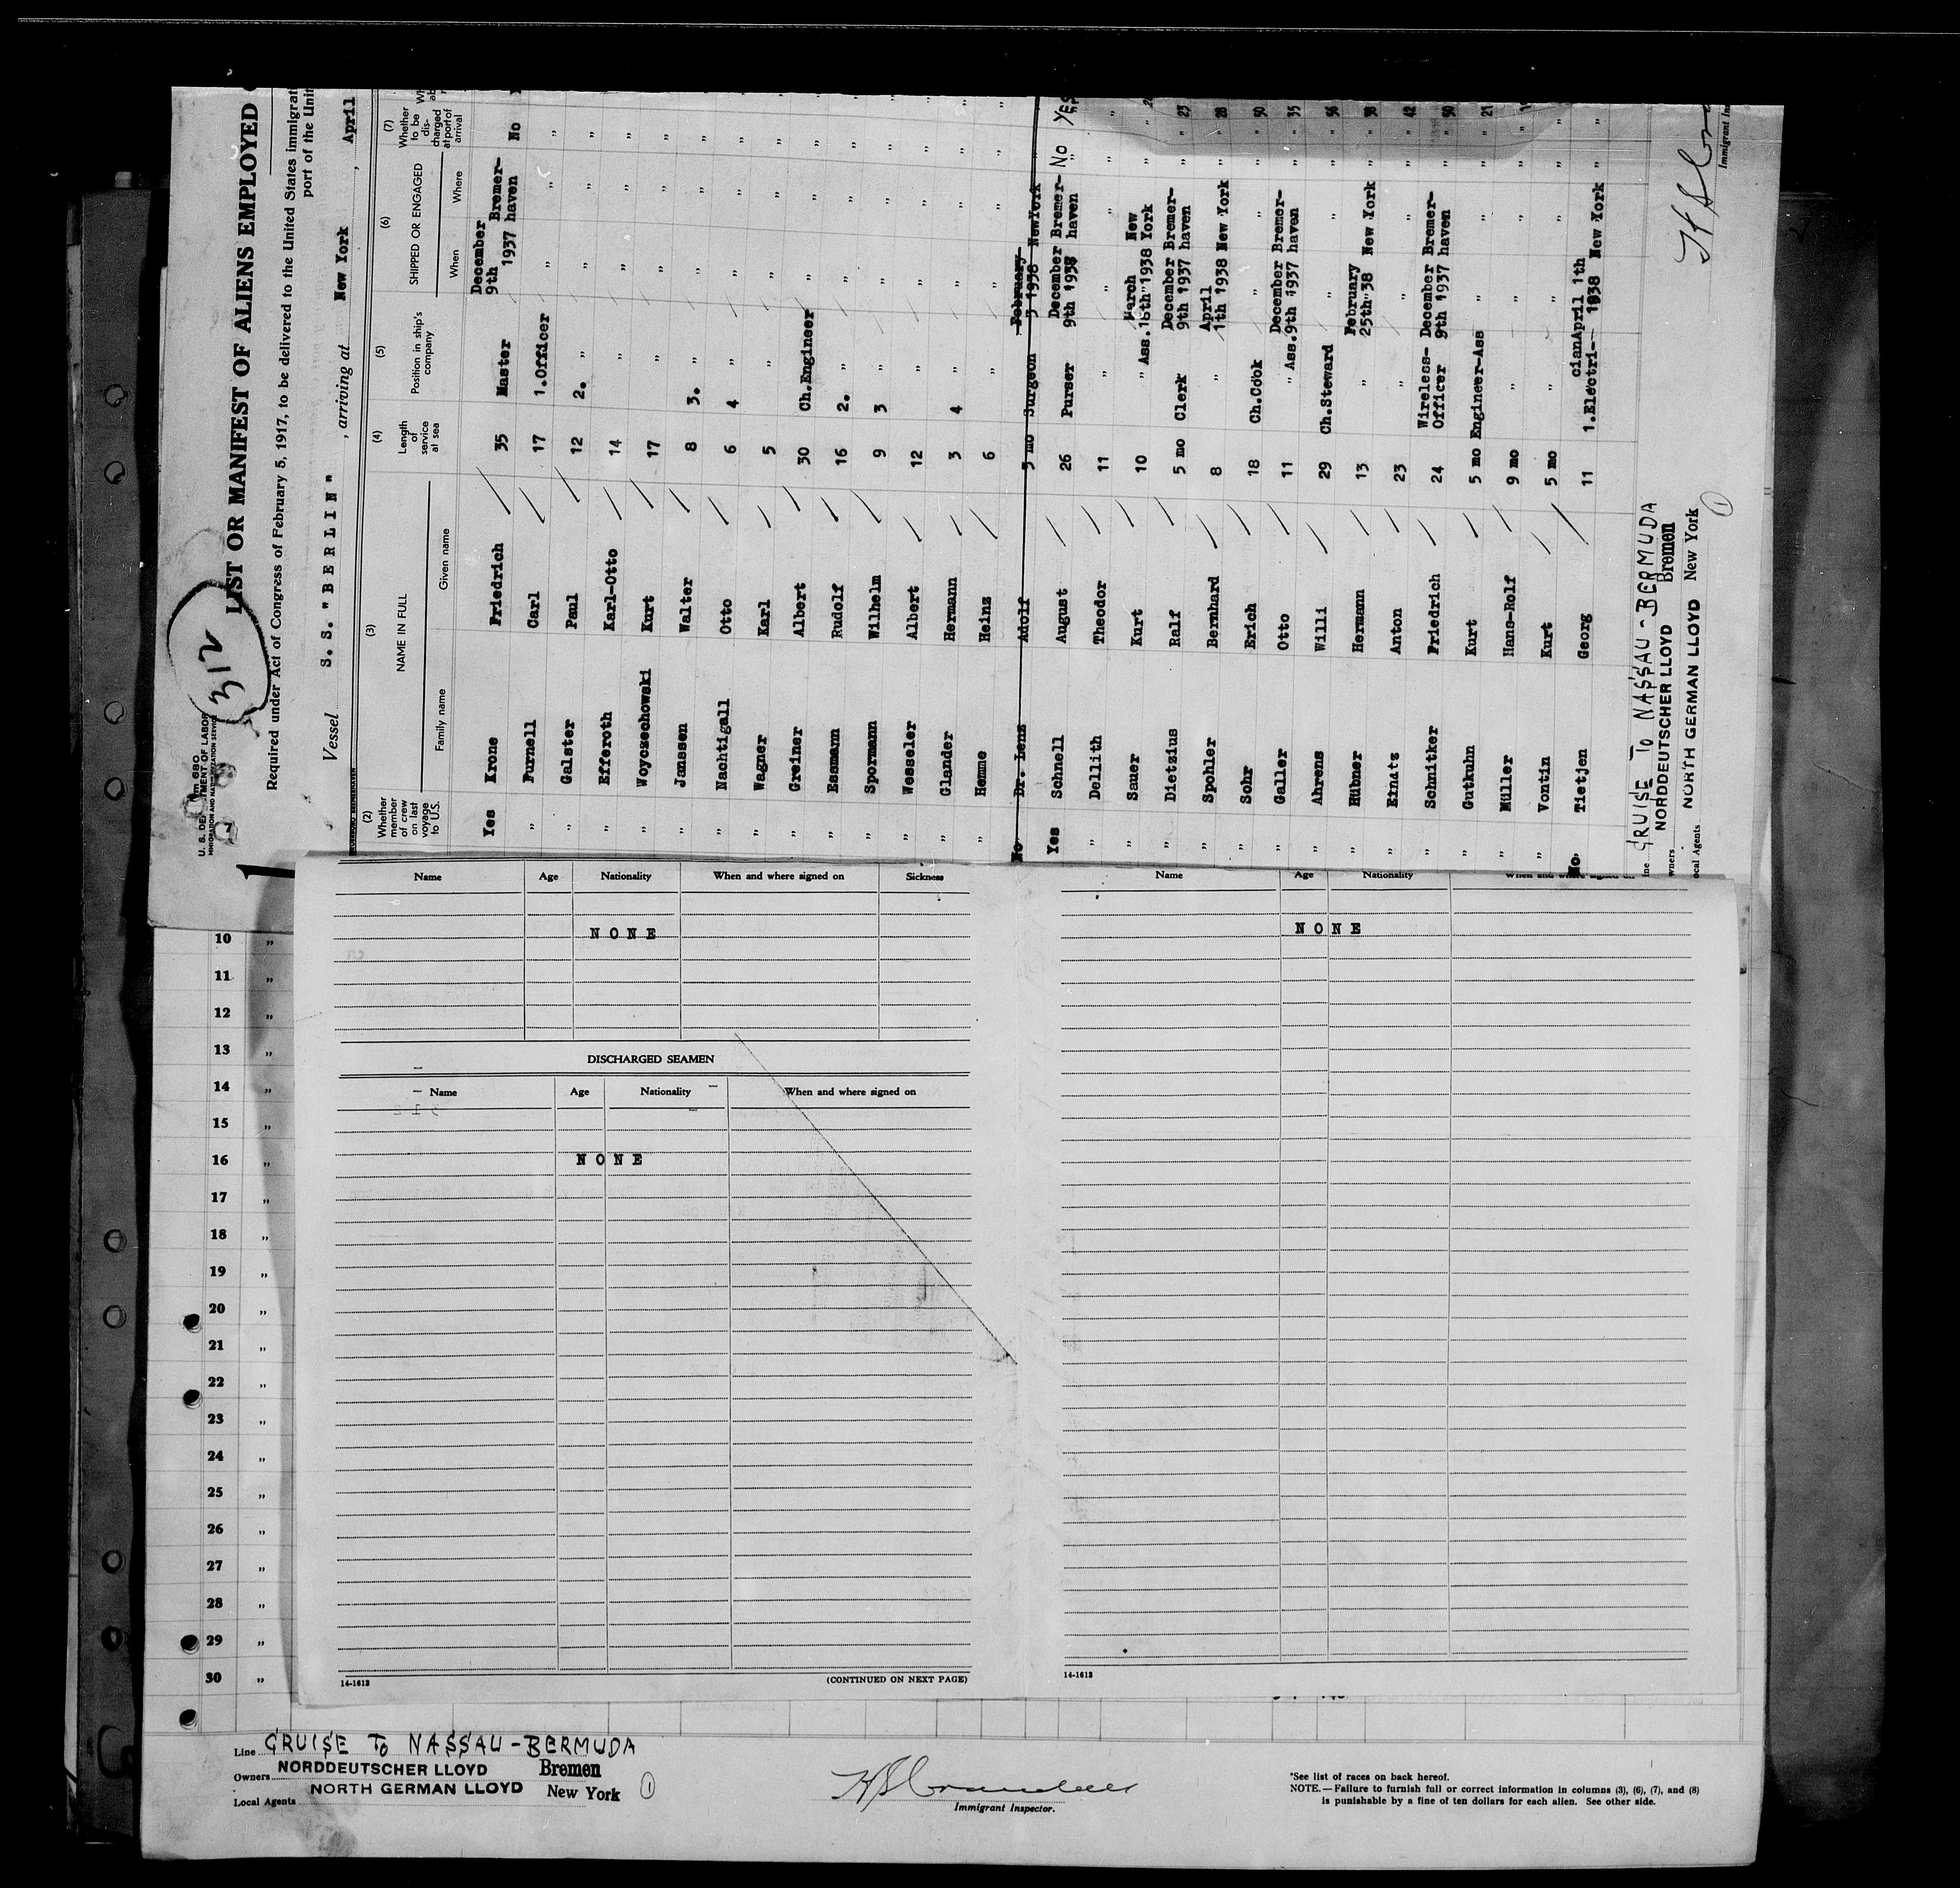 Form 680
U. S. DEPARTMENT OF LABOR
IMMIGRATION AND NATURALIZATION SERVICE
312
LIST OR MANIFEST OF ALIENS EMPLOYED
Required under Act of Congress of February 5, 1917, to be delivered to the United States immigrat
port of the Unit
Vessel S. S. "BERLIN" , arriving at New York , April
(2) (3) (4) (5) (6) (7)
Whether member of crew on last voyage to U.S. NAME IN FULL Family name Given name Length of service at sea Position in ship's company SHIPPED OR ENGAGED When Where Whether to be discharged at port of arrival
Yes Krone Friedrich 35 Master December 9th 1937 Bremerhaven No
" Furnell Carl 17 1.Officer " " "
" Galster Paul 12 2. " " " "
" Efferoth Karl-Otto 14 " " " "
" Woyczechowski Kurt 17 " " " "
" Janssen Walter 8 3. " " " "
" Nachtigall Otto 6 4 " " " "
" Wagner Karl 5 " " " "
" Greiner Albert 30 Ch.Engineer " " "
" Essmann Rudolf 16 2. " " " "
" Spormann Wilhelm 9 3 " " " "
" Wesseler Albert 12 " " " "
" Glander Hermann 3 4 " " " "
" Hemme Heinz 6 " " " "
No Dr. Lenz Adolf 3 mo Surgeon February 3 1938 NewYork "
Yes Schnell August 26 Purser December 9th 1937 Bremerhaven No Yes
" Dellith Theodor 11 " " " "
" Sauer Kurt 10 " Ass. March 18th"1938 New York "
" Dietzius Ralf 5 mo Clerk December 9th 1937 Bremerhaven " " 23
" Spohler Bernhard 8 " April 1th 1938 New York " " 28
" Sohr Erich 18 Ch.Cook " " " " 50
" Galler Otto 11 " Ass. December 9th 1937 Bremerhaven " " 35
" Ahrens Willi 29 Ch.Steward " " " " 56
" Hübner Hermann 13 " February 25th"38 New York " " 38
" Eindtz Anton 23 " " " " " 42
" Schnitker Friedrich 24 Wireless-Officer December 9th 1937 Bremerhaven " " 50
" Gutkuhn Kurt 5 mo Engineer-Ass " " " " 21
" Müller Hans-Rolf 9 mo " " " " "
" Vontin Kurt 5 mo " " " " "
No. Tietjen Georg 11 1.Electrician April 1th 1938 New York " "
CRUISE To NASSAU - BERMUDA
NORDDEUTSCHER LLOYD Bremen
NORTH GERMAN LLOYD New York
1
Immigrant In
Name Age Nationality When and where signed on Sickness
NONE
DISCHARGED SEAMEN
Name Age Nationality When and where signed on
NONE
14-1613 (CONTINUED ON NEXT PAGE)
Name Age Nationality When and where signed on
NONE
14-1613
10 "
11 "
12 "
13 "
14 "
15 "
16 "
17 "
18 "
19 "
20 "
21 "
22 "
23 "
24 "
25 "
26 "
27 "
28 "
29 "
30 "
Line CRUISE To NASSAU - BERMUDA
Owners NORDDEUTSCHER LLOYD Bremen
Local Agents NORTH GERMAN LLOYD New York 1
Immigrant Inspector.
*See list of races on back hereof.
NOTE.—Failure to furnish full or correct information in columns (3), (6), (7), and (8)
is punishable by a fine of ten dollars for each alien. See other side.